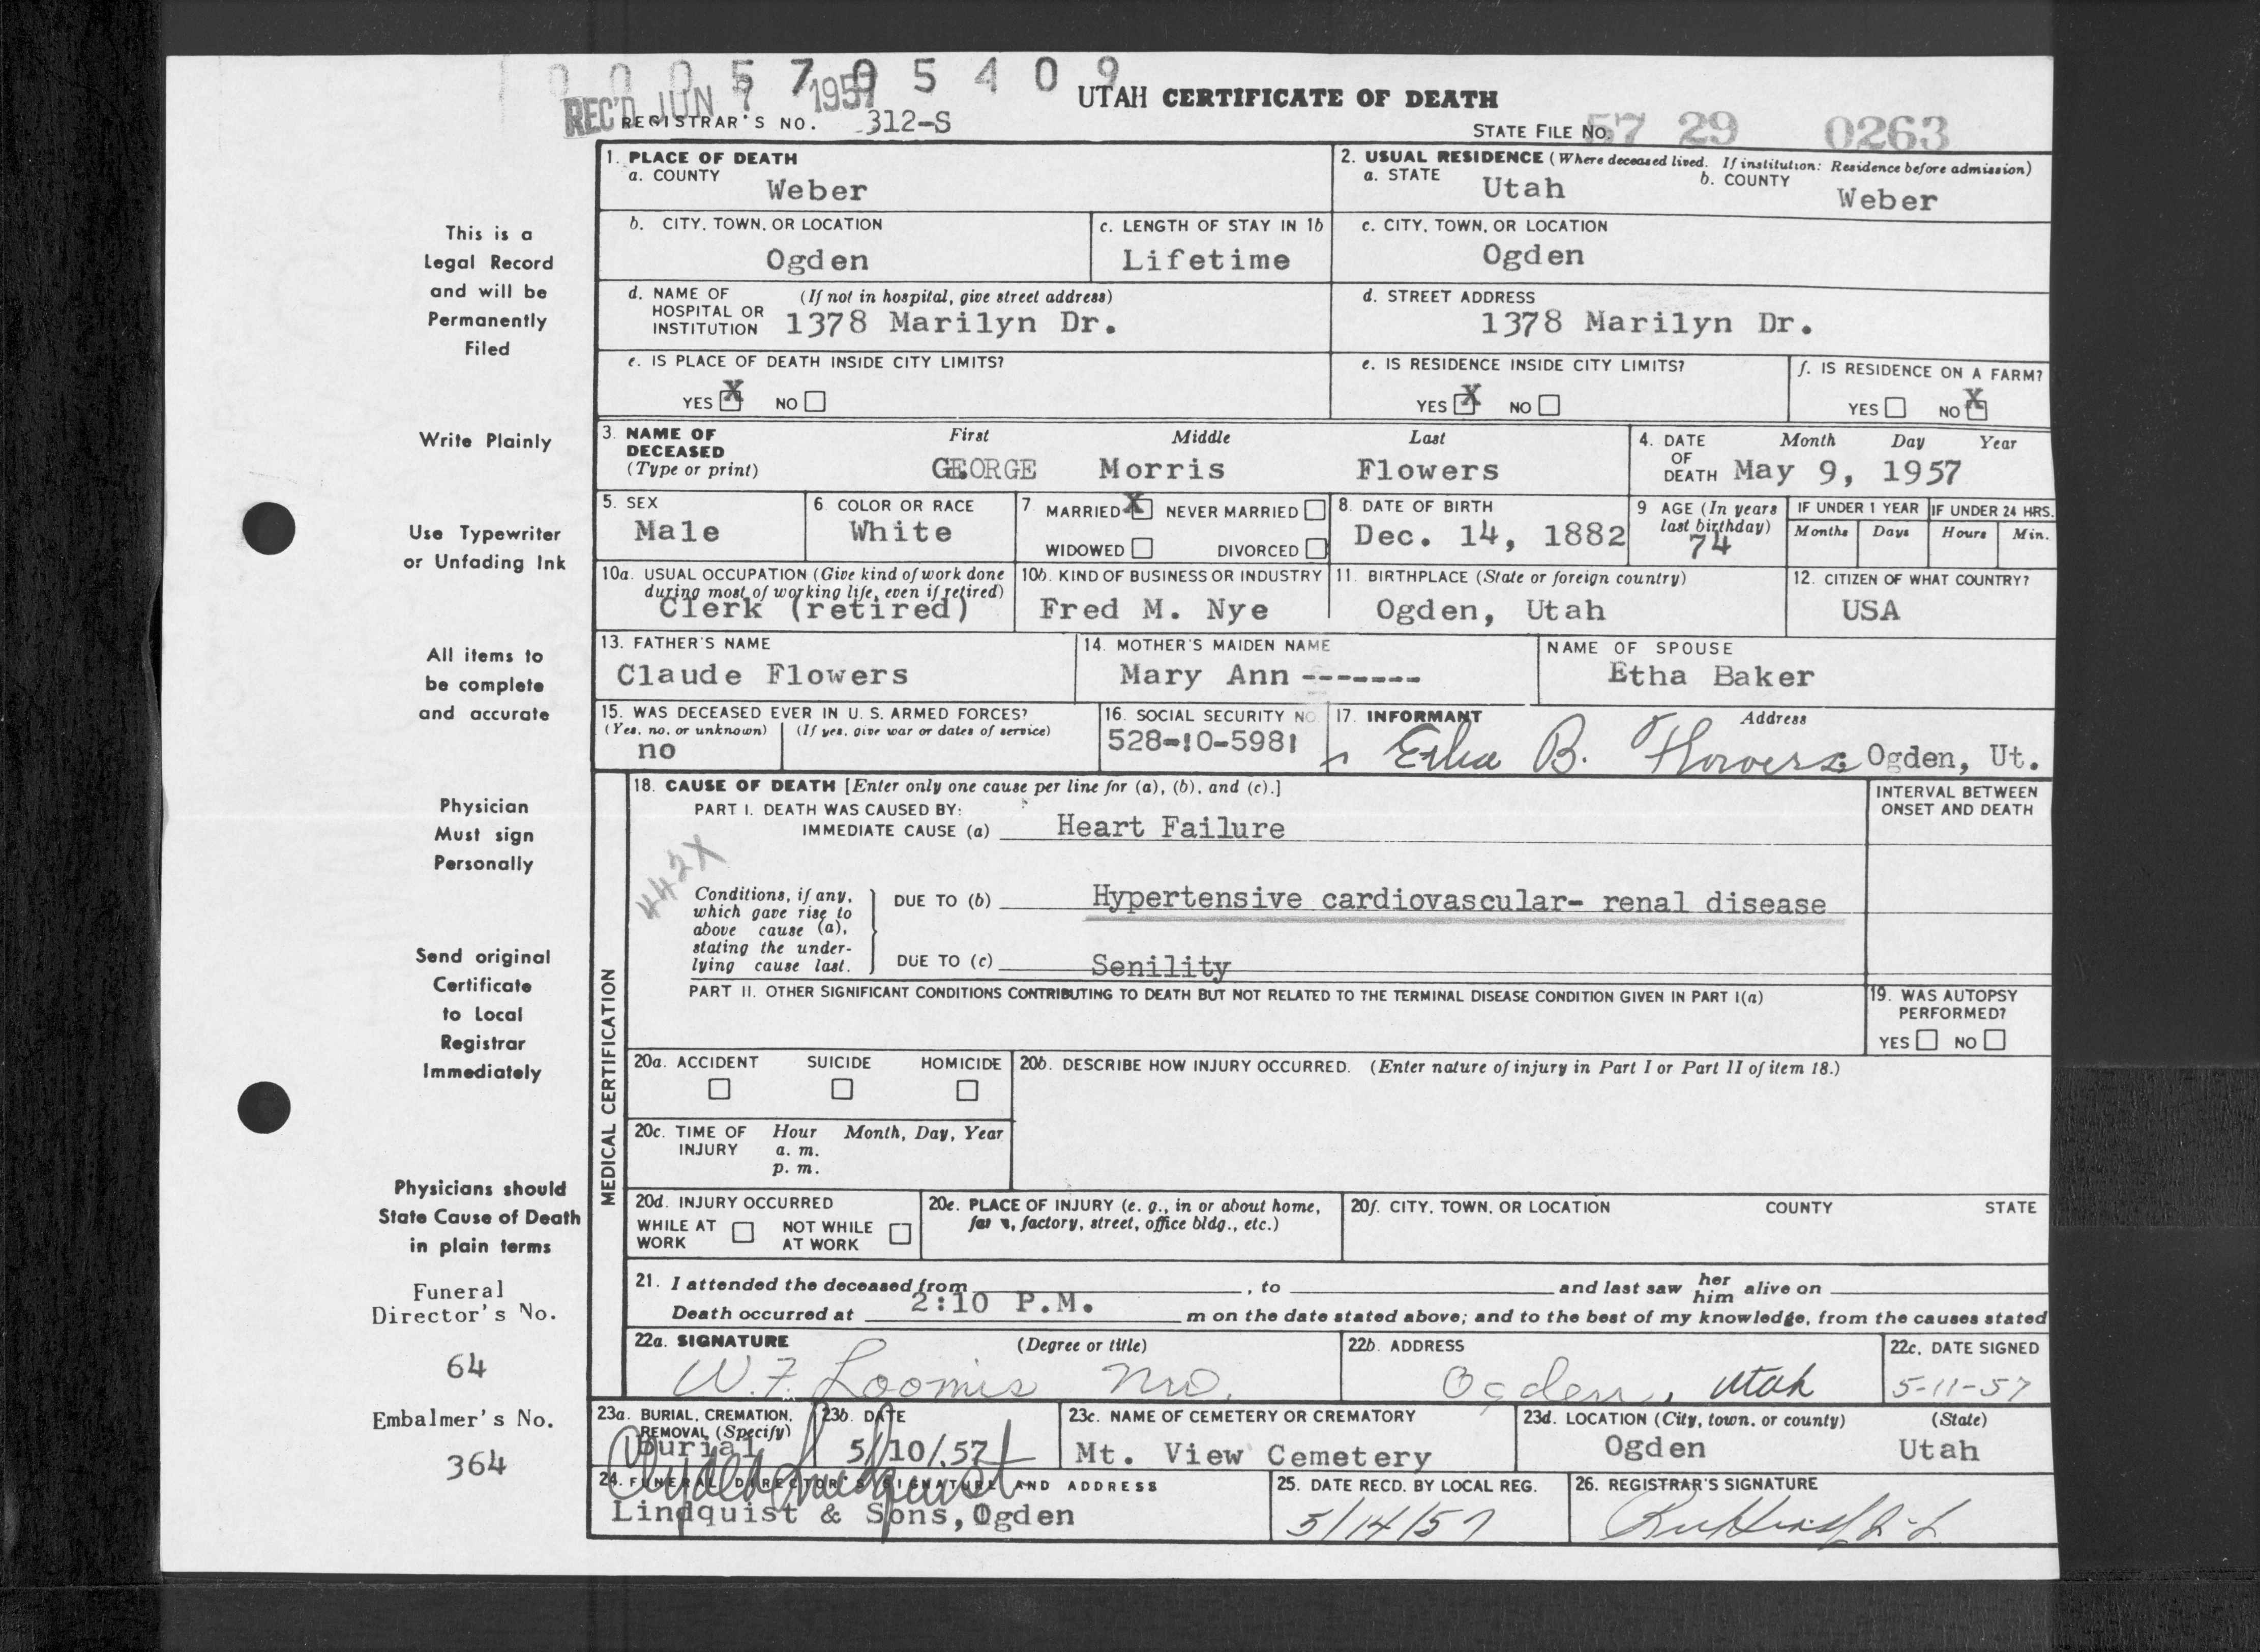 0 0 0 5 7 0 5 4 0 9
REC'D JUN 7 1957
UTAH CERTIFICATE OF DEATH
REGISTRAR'S NO. 312-S
STATE FILE No. 57 29 0263
This is a
Legal Record
and will be
Permanently
Filed
Write Plainly
Use Typewriter
or Unfading Ink
All items to
be complete
and accurate
Physician
Must sign
Personally
Send original
Certificate
to Local
Registrar
Immediately
Physicians should
State Cause of Death
in plain terms
Funeral
Director's No.
64
Embalmer's No.
364
1. PLACE OF DEATH
a. COUNTY
Weber
2. USUAL RESIDENCE (Where deceased lived. If institution: Residence before admission)
a. STATE Utah b. COUNTY Weber
b. CITY, TOWN, OR LOCATION
Ogden
c. LENGTH OF STAY IN 1b
Lifetime
c. CITY, TOWN, OR LOCATION
Ogden
d. NAME OF (If not in hospital, give street address)
HOSPITAL OR
INSTITUTION 1378 Marilyn Dr.
d. STREET ADDRESS
1378 Marilyn Dr.
e. IS PLACE OF DEATH INSIDE CITY LIMITS?
YES X NO
e. IS RESIDENCE INSIDE CITY LIMITS?
YES X NO
f. IS RESIDENCE ON A FARM?
YES NO X
3. NAME OF DECEASED (Type or print)
First Middle Last
GEORGE Morris Flowers
4. DATE OF DEATH
Month Day Year
May 9, 1957
5. SEX
Male
6. COLOR OR RACE
White
7. MARRIED X NEVER MARRIED
WIDOWED DIVORCED
8. DATE OF BIRTH
Dec. 14, 1882
9. AGE (In years
last birthday)
74
IF UNDER 1 YEAR
Months Days
IF UNDER 24 HRS.
Hours Min.
10a. USUAL OCCUPATION (Give kind of work done
during most of working life, even if retired)
Clerk (retired)
10b. KIND OF BUSINESS OR INDUSTRY
Fred M. Nye
11. BIRTHPLACE (State or foreign country)
Ogden, Utah
12. CITIZEN OF WHAT COUNTRY?
USA
13. FATHER'S NAME
Claude Flowers
14. MOTHER'S MAIDEN NAME
Mary Ann -------
NAME OF SPOUSE
Etha Baker
15. WAS DECEASED EVER IN U. S. ARMED FORCES?
(Yes, no, or unknown) (If yes, give war or dates of service)
no
16. SOCIAL SECURITY NO
528-10-5981
17. INFORMANT Address
Etha B. Flowers Ogden, Ut.
MEDICAL CERTIFICATION
18. CAUSE OF DEATH [Enter only one cause per line for (a), (b), and (c).]
PART I. DEATH WAS CAUSED BY:
IMMEDIATE CAUSE (a) Heart Failure
INTERVAL BETWEEN
ONSET AND DEATH
442X
Conditions, if any,
which gave rise to
above cause (a),
stating the under-
lying cause last.
DUE TO (b) Hypertensive cardiovascular- renal disease
DUE TO (c) Senility
PART II. OTHER SIGNIFICANT CONDITIONS CONTRIBUTING TO DEATH BUT NOT RELATED TO THE TERMINAL DISEASE CONDITION GIVEN IN PART I(a)
19. WAS AUTOPSY
PERFORMED?
YES NO
20a. ACCIDENT SUICIDE HOMICIDE
20b. DESCRIBE HOW INJURY OCCURRED. (Enter nature of injury in Part I or Part II of item 18.)
20c. TIME OF INJURY
Hour Month, Day, Year
a. m.
p. m.
20d. INJURY OCCURRED
WHILE AT WORK
NOT WHILE AT WORK
20e. PLACE OF INJURY (e. g., in or about home,
farm, factory, street, office bldg., etc.)
20f. CITY, TOWN, OR LOCATION COUNTY STATE
21. I attended the deceased from , to and last saw her him alive on
Death occurred at 2:10 P.M. m on the date stated above; and to the best of my knowledge, from the causes stated
22a. SIGNATURE (Degree or title)
W. F. Loomis MD.
22b. ADDRESS
Ogden, Utah
22c. DATE SIGNED
5-11-57
23a. BURIAL, CREMATION,
REMOVAL (Specify)
Burial
23b. DATE
5/10/57
23c. NAME OF CEMETERY OR CREMATORY
Mt. View Cemetery
23d. LOCATION (City, town, or county) (State)
Ogden Utah
24. FUNERAL DIRECTOR'S SIGNATURE AND ADDRESS
Lindquist & Sons, Ogden
25. DATE RECD. BY LOCAL REG.
5/14/57
26. REGISTRAR'S SIGNATURE